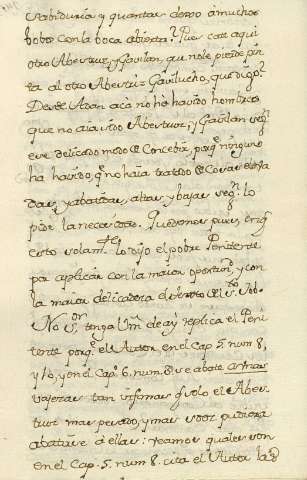 sabiduria y quantas dexo a muchos
bobos con la boca abierta? Pues cate aqui
otro Abestruz, y Gavilan, que no le pierde pin
ta al otro Abestruz Gavilucho, que digo?
Desde Adan acá no ha havido hombres
que no aia sido Abestruz, y Gavilan segn.
ese delicado modo de Concebir, porq.e ninguno
ha havido, q.e no haia tratado de
y abatirse, alzar, y bajar segn. lo
pide la necesidad. Quedemos pues, en q.e
esto solam.te lo dijo el pobre Penitente
por aplicar con la maior y con
la maior delicadeza
No S.or, tenga Um.d de ay replica el Peni
tente porq.e el Autor, en el Cap. 5. num. 8,
y 10, y en el Cap. 6. num. 8 se abate
tan infimas q.e solo el Abes
truz mas pesado, y mas pudiera
abatirse a ellas: veamos quales son
en el Cap. 5. num. 8. cita el Autor la